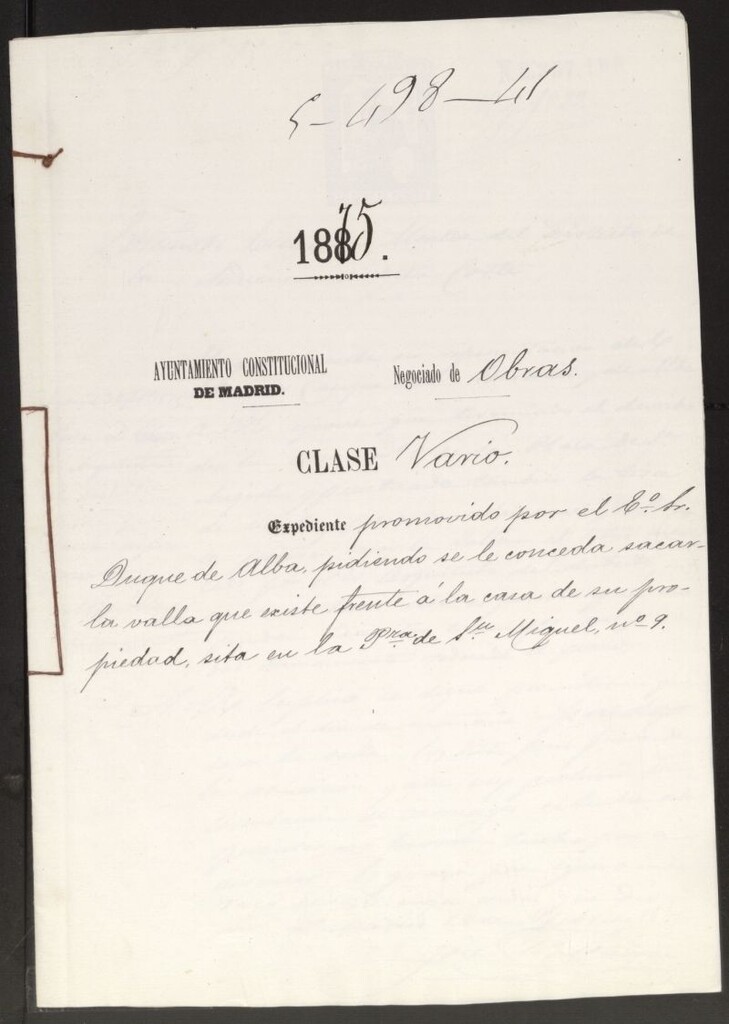 5-498-41
1875.
AYUNTAMIENTO CONSTITUCIONAL
DE MADRID.
Negociado de Obras.
CLASE Vario.
Expediente promovido por el E.º Sr.
Duque de Alba, pidiendo se le conceda sacar
la valla que existe frente á la casa de su pro-
piedad, sita en la Pza. de Sn Miguel, nº 9.